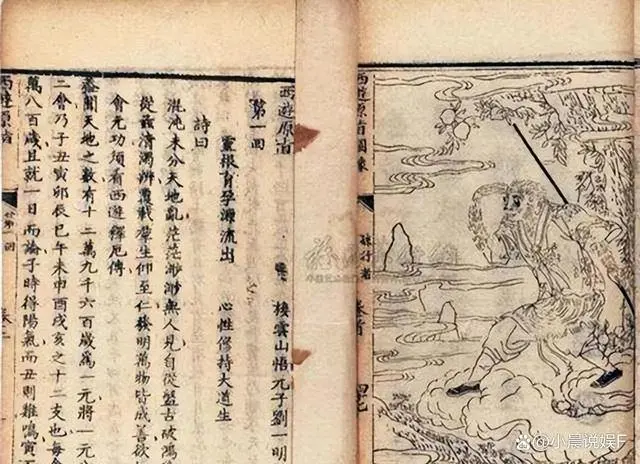 西遊原旨圖像
孫行者
卷首
西遊原旨
棲雲山悟元子劉一明
第一回
靈根育孕源流出 心性修持大道生
詩曰
混沌未分天地亂茫茫渺渺無人見自從盤古破鴻
從茲清濁辨覆載羣生仰至仁發明萬物皆成善欲
會元功須看西遊釋厄傳
蓋聞天地之數有十二萬九千六百歲爲一元將一元分
二會乃子丑寅卯辰巳午未申酉戌亥之十二支也每會
萬八百歲且就一日而論子時得陽氣而丑則雞鳴寅
西遊原旨
第一回
@小晨说娱F